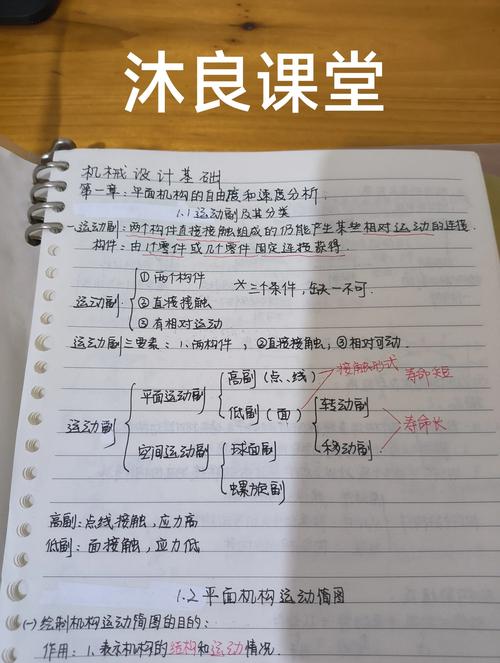 沐良课堂
机械设计基础
第一章:平面机构的自由度和速度分析.
1.1运动副及其分类
一运动副:两个构件直接接触组成的仍能产生某些相对运动的连接.
构件:由1个零件或几个零件固定连接获得.
①两个构件
运动副 ②直接接触 *三个条件,缺一不可.
③有相对运动
运动副三要素:1.两构件,②直接接触,③相对可动.
接触形式
高副(点、线) 寿命短
平面运动副
低副(面) 转动副
运动副 寿命长
移动副
空间运动副 球面副
螺旋副
高副:点线接触,应力高
低副:面接触,应力低
1.2平面机构运动简图
(一)绘制机构运动简图的目的:
作用:1.表示机构的结构和运动情况.